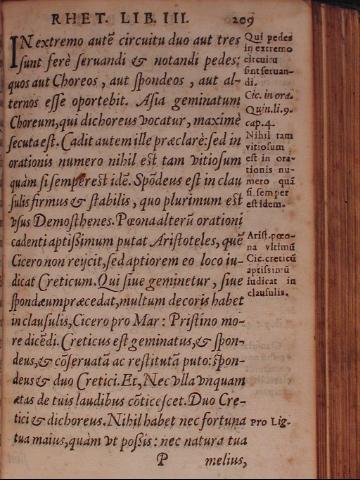 RHET. LIB. III. 209
IN extremo autē circuitu duo aut tres
sunt ferè seruandi & notandi pedes;
quos aut Choreos, aut spondeos, aut al-
ternos esse oportebit. Asia geminatum
Choreum, qui dichoreus vocatur, maximè
secuta est. Cadit autem ille præclarè: sed in
orationis numero nihil est tam vitiosum
quàm si semper est idē. Spōdeus est in clau
sulis firmus & stabilis, quo plurimum est
vsus Demosthenes. Pœona alterū orationi
cadenti aptissimum putat Aristoteles, quē
Cicero non reijcit, sed aptiorem eo loco iu-
dicat Creticum. Qui siue geminetur, siue
spondæum præcedat, multum decoris habet
in clausulis, Cicero pro Mar: Pristino mo-
re dicēdi. Creticus est geminatus, & spon-
deus, & cōseruatā ac restitutā puto: spon-
deus, & duo Cretici. Et, Nec vlla vnquam
ætas de tuis laudibus cōticescet. Duo Cre-
tici & dichoreus. Nihil habet nec fortuna
tua maius, quàm vt possis: nec natura tua
P melius,
Qui pedes
in extremo
circuitu
sint seruan-
di.
Cic. in ora.
Quin. li. 9.
cap. 4.
Nihil tam
vitiosum
est in ora-
tionis nu-
mero quā
si semper
est idem.
Arist. pœo-
na vltimū
Cic. creticū
aptissimū
iudicat in
clausulis.
Pro Lig-